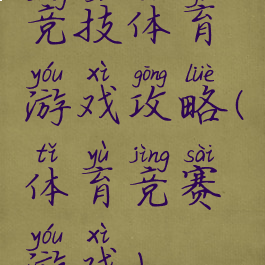 竞技体育
yóu xì gōng lüè
游戏攻略(
tǐ yù jìng sài
体育竞赛
yóu xì
游戏)